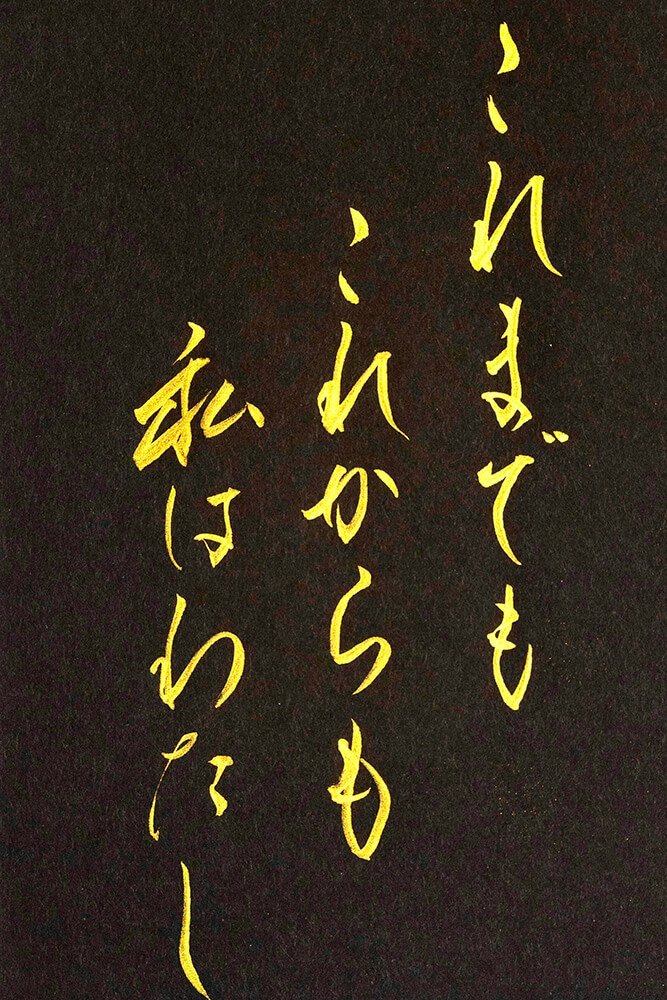 これまでも
これからも
私はわたし